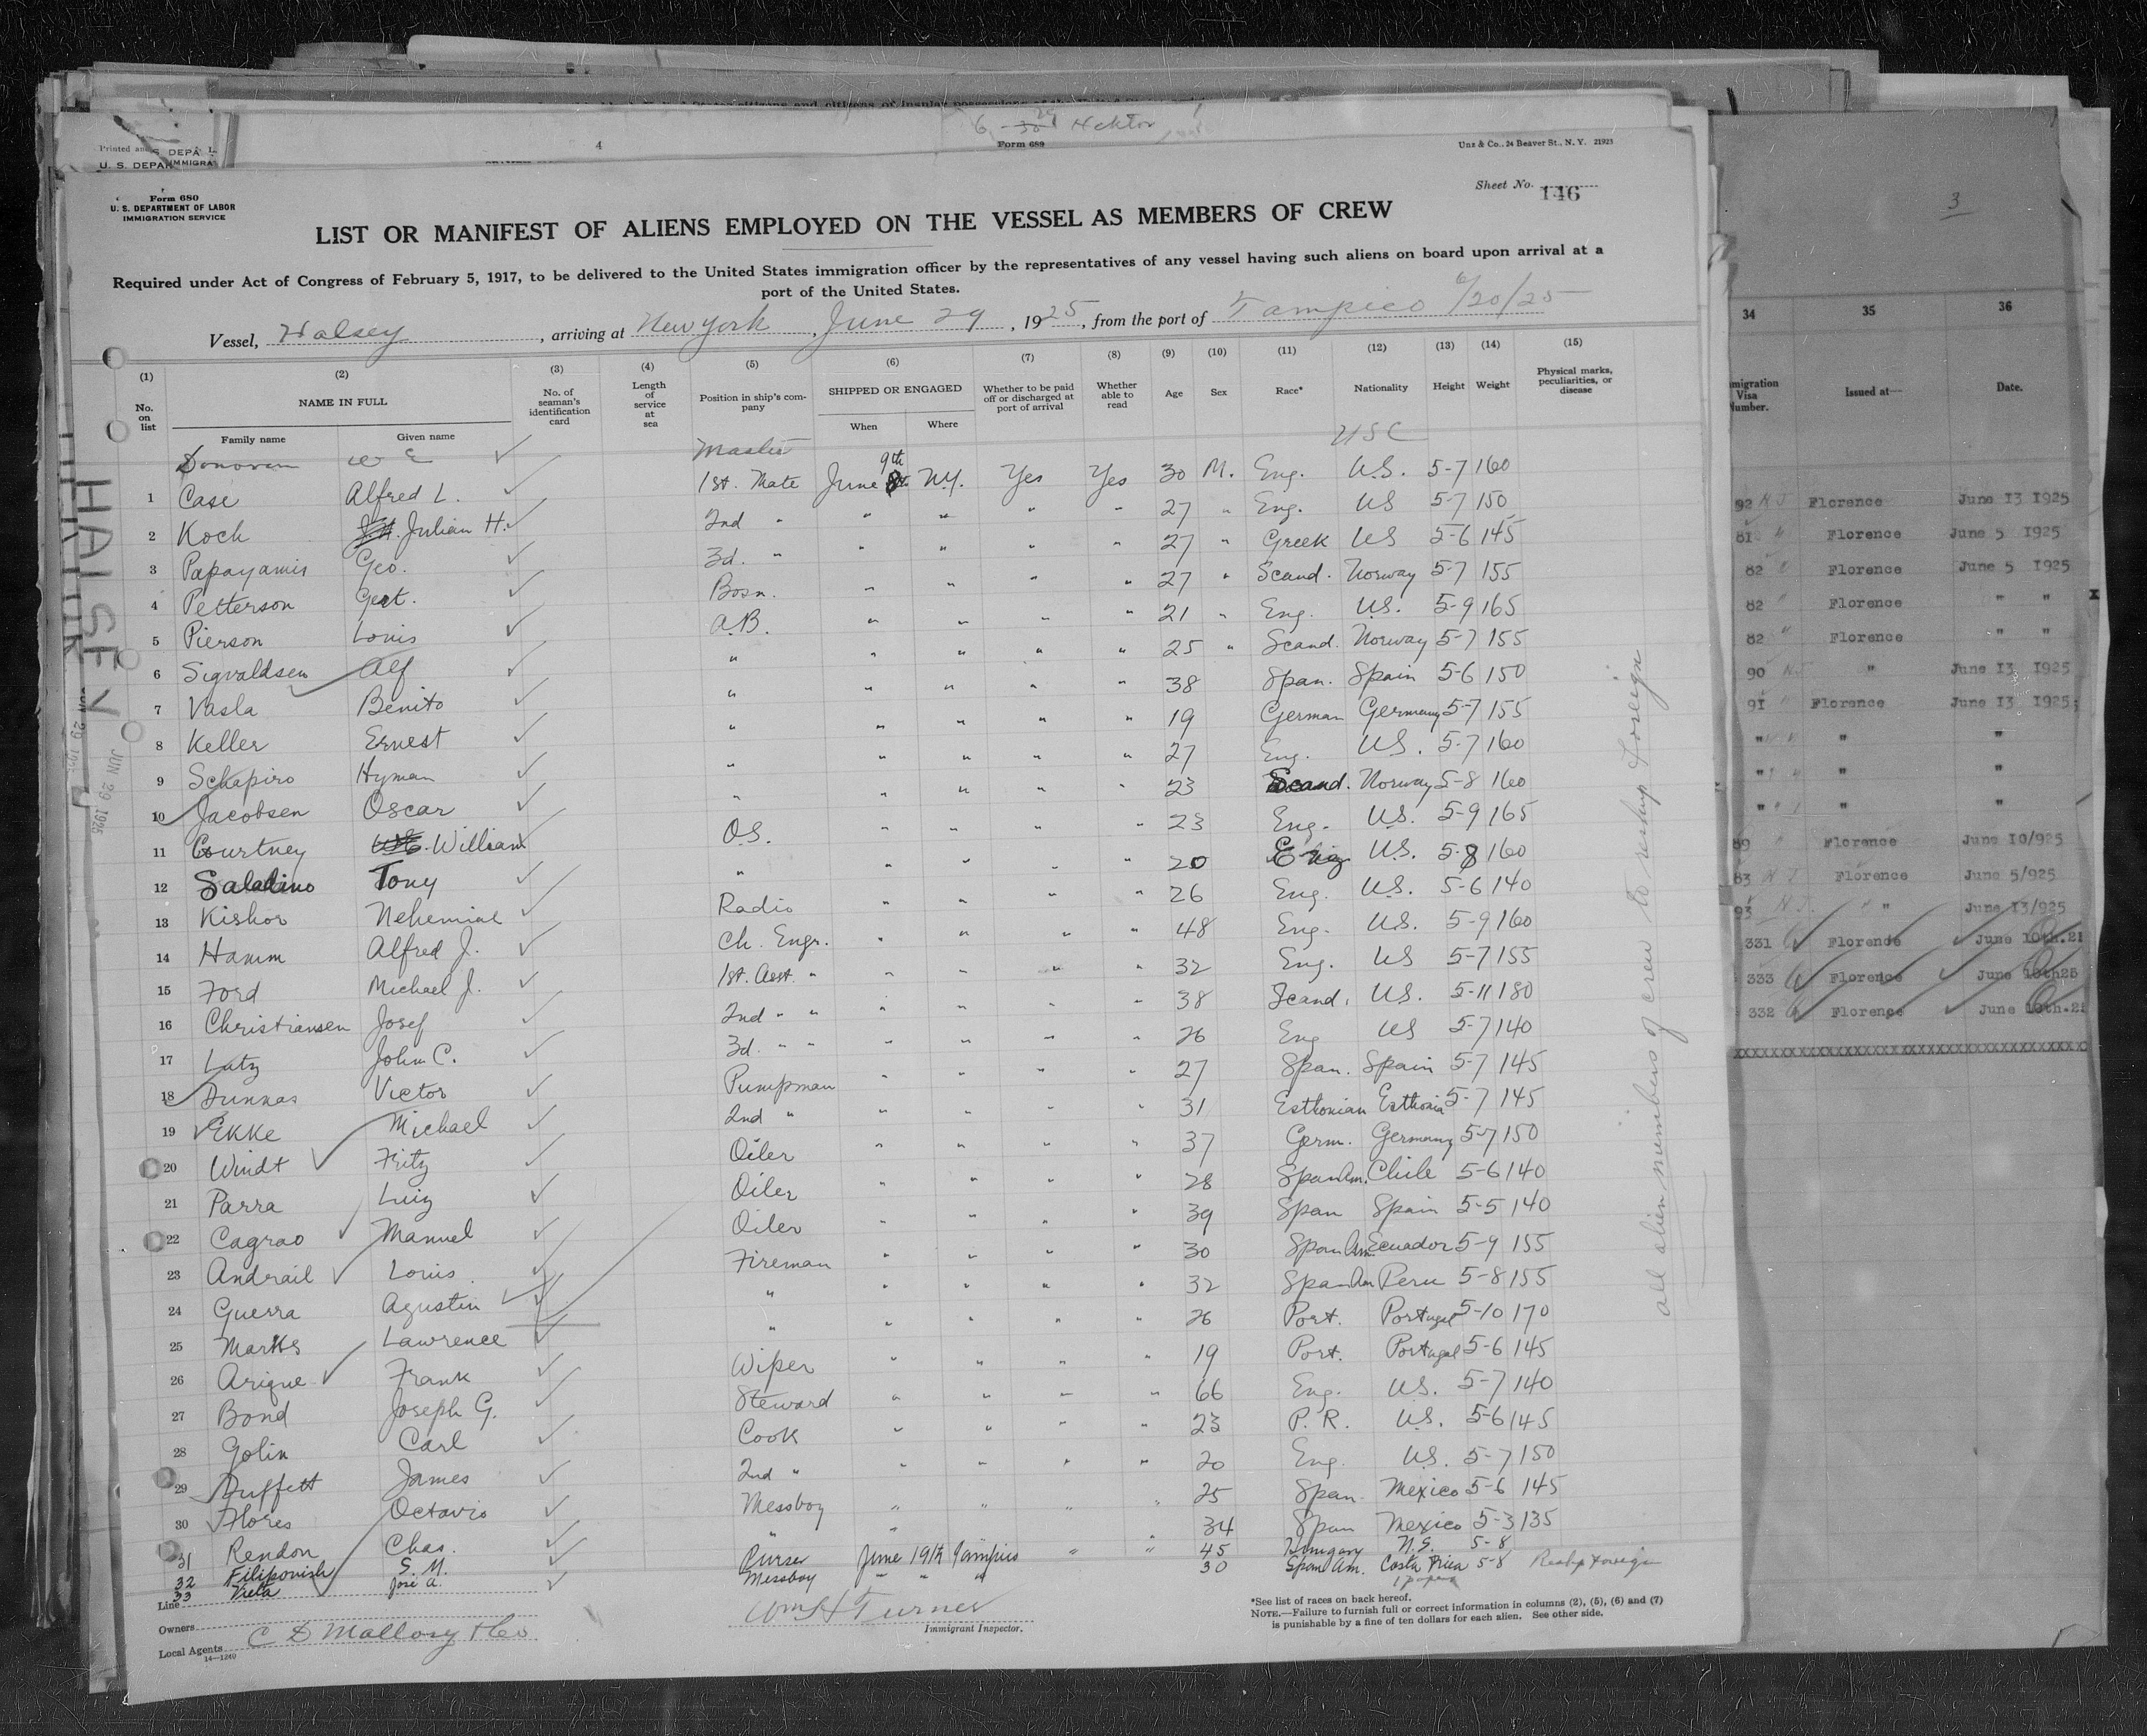 6 29 Hektor
4
Form 689
Unz & Co., 24 Beaver St., N. Y. 21923
Printed and
S. DEPA
U. S. DEPA
IMMIGRA
Form 680
U. S. DEPARTMENT OF LABOR
IMMIGRATION SERVICE
Sheet No. 146
LIST OR MANIFEST OF ALIENS EMPLOYED ON THE VESSEL AS MEMBERS OF CREW
Required under Act of Congress of February 5, 1917, to be delivered to the United States immigration officer by the representatives of any vessel having such aliens on board upon arrival at a
port of the United States.
Vessel, Halsey, arriving at New York, June 29, 1925, from the port of Tampico 6/20/25
(1) (2) (3) (4) (5) (6) (7) (8) (9) (10) (11) (12) (13) (14) (15)
No. on list NAME IN FULL No. of seaman's identification card Length of service at sea Position in ship's company SHIPPED OR ENGAGED Whether to be paid off or discharged at port of arrival Whether able to read Age Sex Race* Nationality Height Weight Physical marks, peculiarities, or disease
Family name Given name When Where
Donovan W E Master USC
1 Case Alfred L. 1st. Mate June 9th N.Y. Yes Yes 30 M. Eng. U.S. 5-7 160
2 Koch Julian H. 2nd " " " " " 27 " Eng. US 5-7 150
3 Papayamis Geo. 3d. " " " " " 27 " Greek US 5-6 145
4 Petterson Gert. Bosn. " " " " 27 " Scand. Norway 5-7 155
5 Pierson Louis A.B. " " " " 21 " Eng. U.S. 5-9 165
6 Sigvaldsen Alf " " " " " 25 " Scand. Norway 5-7 155
7 Vasla Benito " " " " " 38 Span. Spain 5-6 150
8 Keller Ernest " " " " " 19 German Germany 5-7 155
9 Schapiro Hyman " " " " " 27 Eng. US. 5-7 160
10 Jacobsen Oscar " " " " " 23 Scand. Norway 5-8 160
11 Courtney William O.S. " " " " 23 Eng. U.S. 5-9 165
12 Saladino Tony " " " " " 20 Eng U.S. 5-8 160
13 Kishor Nehemiae Radio " " " " 26 Eng. U.S. 5-6 140
14 Hamm Alfred J. Ch. Engr. " " " " 48 Eng. U.S. 5-9 160
15 Ford Michael J. 1st. Asst. " " " " " 32 Eng. US 5-7 155
16 Christiansen Josef 2nd " " " " " " 38 Scand. U.S. 5-11 180
17 Lutz John C. 3d. " " " " " " 26 Eng US 5-7 140
18 Dunnas Victor Pumpman " " " " 27 Span. Spain 5-7 145
19 Ekke Michael 2nd " " " " " 31 Esthonian Esthonia 5-7 145
20 Windt Fritz Oiler " " " " 37 Germ. Germany 5-7 150
21 Parra Luiz Oiler " " " " 28 Span Am. Chile 5-6 140
22 Cagrao Manuel Oiler " " " " 39 Span Spain 5-5 140
23 Andrail Louis Fireman " " " " 30 Span Am. Ecuador 5-9 155
24 Guerra Agustin " " " " " 32 Span Am Peru 5-8 155
25 Marks Lawrence " " " " " 26 Port. Portugal 5-10 170
26 Arique Frank Wiper " " " " 19 Port. Portugal 5-6 145
27 Bond Joseph G. Steward " " " " 66 Eng. US. 5-7 140
28 Golin Carl Cook " " " " 23 P.R. U.S. 5-6 145
29 Duffett James 2nd " " " " " 20 Eng. U.S. 5-7 150
30 Flores Octavio Messboy " " " " 25 Span. Mexico 5-6 145
31 Rendon Chas. " " " 34 Span Mexico 5-3 135
32 Filiponish S. M. Purser June 19th Tampico " " 45 Hungary 5-8
33 Vieta Jose A. Messboy " " " 30 Span Am. Costa Rica 5-8 Reship foreign
all alien members of crew to reship foreign
Line
Owners
Local Agents C D Mallory & Co
14—1240
Wm H Turner
Immigrant Inspector.
*See list of races on back hereof.
NOTE.—Failure to furnish full or correct information in columns (2), (5), (6) and (7)
is punishable by a fine of ten dollars for each alien. See other side.
HALSEY
JUN 29 1925
3
34 35 36
migration Visa Number. Issued at— Date.
92 NJ Florence June 13 1925
81 " Florence June 5 1925
82 " Florence June 5 1925
82 " Florence " "
82 " Florence " "
90 NJ " June 13 1925
91 " Florence June 13 1925
" " "
" " "
" " "
89 " Florence June 10/925
83 NJ Florence June 5/925
93 N.J. " " June 13/925
331 Florence June 10th.25
333 Florence June 10th25
332 Florence June 10th.25
xxxxxxxxxxxxxxxxxxxxxxxxxxxxxxxxxxx